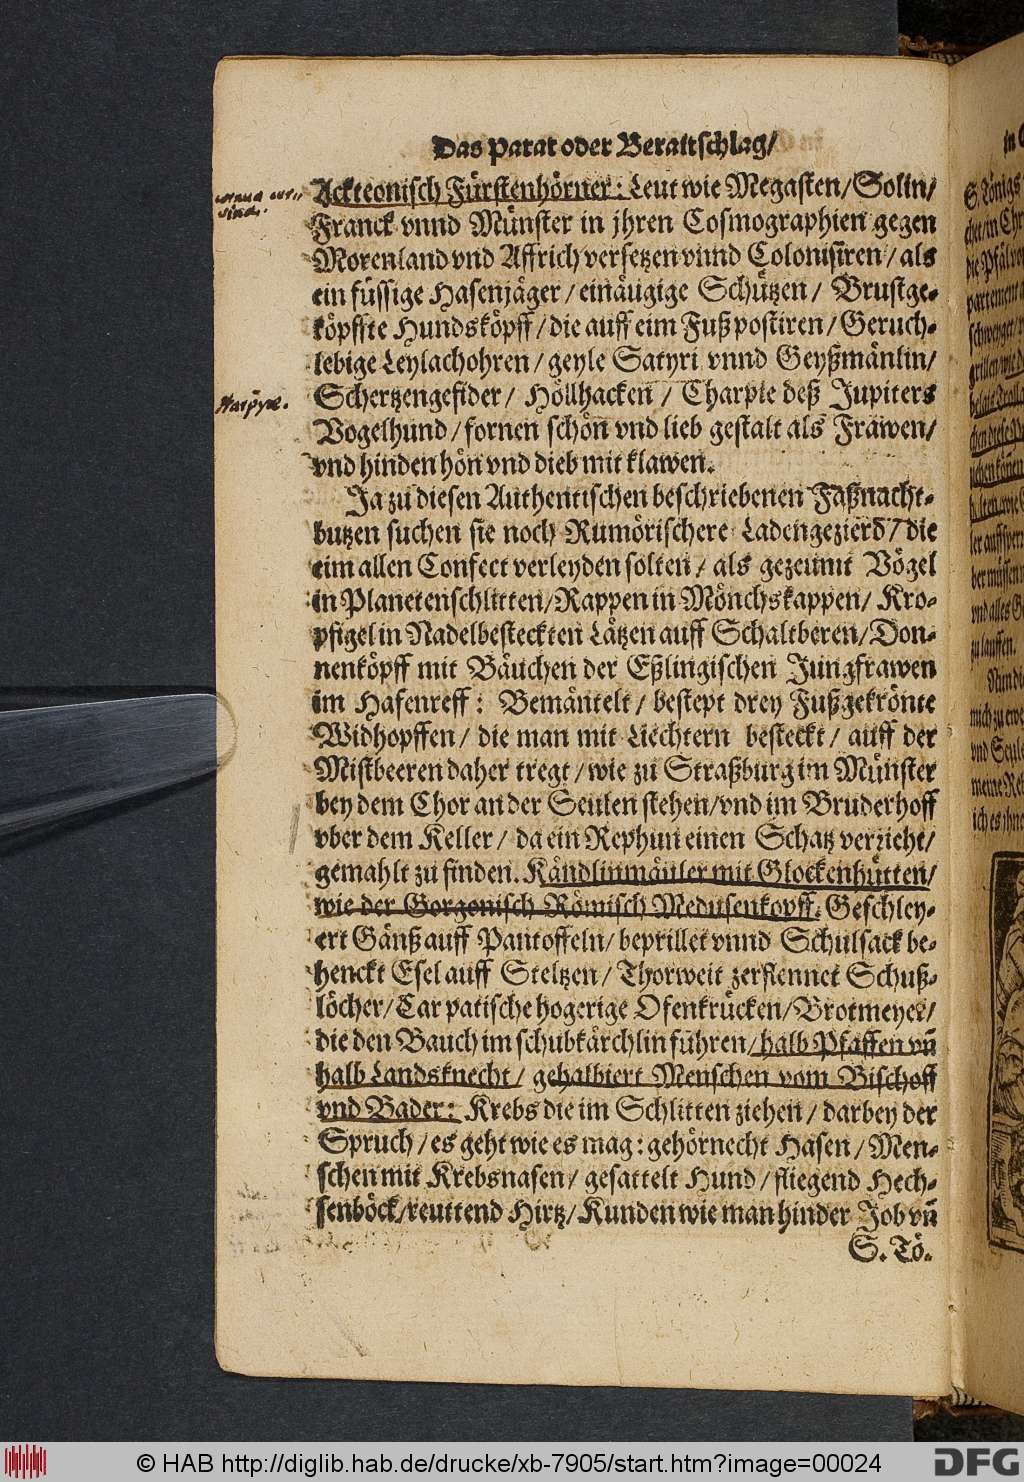 Das Parat oder Beraitschlag/
Ackteonisch Fürstenhörner: Leut wie Megasten/Solin/
Franck vnnd Münster in jhren Cosmographien gegen
Morenland vnd Affrich versetzen vnnd Colonisiren/als
ein füssige Hasenjäger/einäugige Schützen/ Brustge-
köpffte Hundsköpff/die auff eim Fuß postiren/Geruch-
lebige Leylachohren/geyle Satyri vnnd Geyßmänlin/
Schertzengefider/ Höllhacken/ Charpie deß Jupiters
Harpyæ.
Vogelhund/fornen schön vnd lieb gestalt als Frawen/
vnd hinden hön vnd dieb mit klawen.
Ja zu diesen Authentischen beschriebenen Faßnacht-
butzen suchen sie noch Rumörischere Ladengezierd/die
eim allen Confect verleyden solten/als gezeumt Vögel
in Planetenschlitten/Rappen in Mönchskappen/ Kro-
pfigel in Nadelbesteckten Lätzen auff Schaltberen/Don-
nenköpff mit Bäuchen der Eßlingischen Jungfrawen
im Hafenreff: Bemäntelt/bestept drey Fußgekrönte
Widhopffen/ die man mit Liechtern besteckt/ auff der
Mistbeeren daher tregt/wie zu Straßburg im Münster
bey dem Chor an der Seulen stehen/vnd im Bruderhoff
vber dem Keller/ da ein Rephun einen Schatz verzicht/
gemahlt zu finden. Kändlinmäuler mit Glockenhütten/
wie der Gorgonisch Römisch Medusenkopff: Geschley-
ert Gänß auff Pantoffeln/beprillet vnnd Schulsack be-
henckt Esel auff Steltzen/Thorweit zerflennet Schuß-
löcher/Carpatische hogerige Ofenkrücken/Brotmeyer/
die den Bauch im schubkärchlin führen/halb Pfaffen vñ
halb Landsknecht/ gehalbiert Menschen vom Bischoff
vnd Bader: Krebs die im Schlitten ziehen/ darbey der
Spruch/es geht wie es mag: gehörnecht Hasen/Men-
schen mit Krebsnasen/ gesattelt Hund/fliegend Hech-
senböck/reuttend Hirtz/Kunden wie man hinder Job vñ
S. Tö.
© HAB http://diglib.hab.de/drucke/xb-7905/start.htm?image=00024
DFG